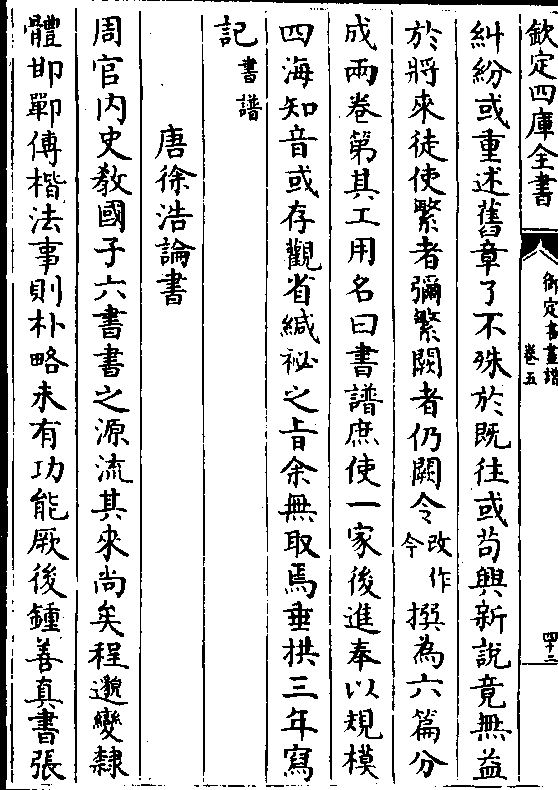 欽定四庫全書
御定書畫譜
卷五
四十二
糾紛或重述舊章了不殊於既往或苟興新說竟無益
於將來徒使繁者彌繁闕者仍闕今改作今撰為六篇分
成兩卷第其工用名曰書譜庶使一家後進奉以規模
四海知音或存觀省緘祕之旨余無取焉垂拱三年寫
記書譜
唐徐浩論書
周官內史教國子六書書之源流其來尚矣程邈變隸
體邯鄲傳楷法事則朴略未有功能厥後鍾善真書張